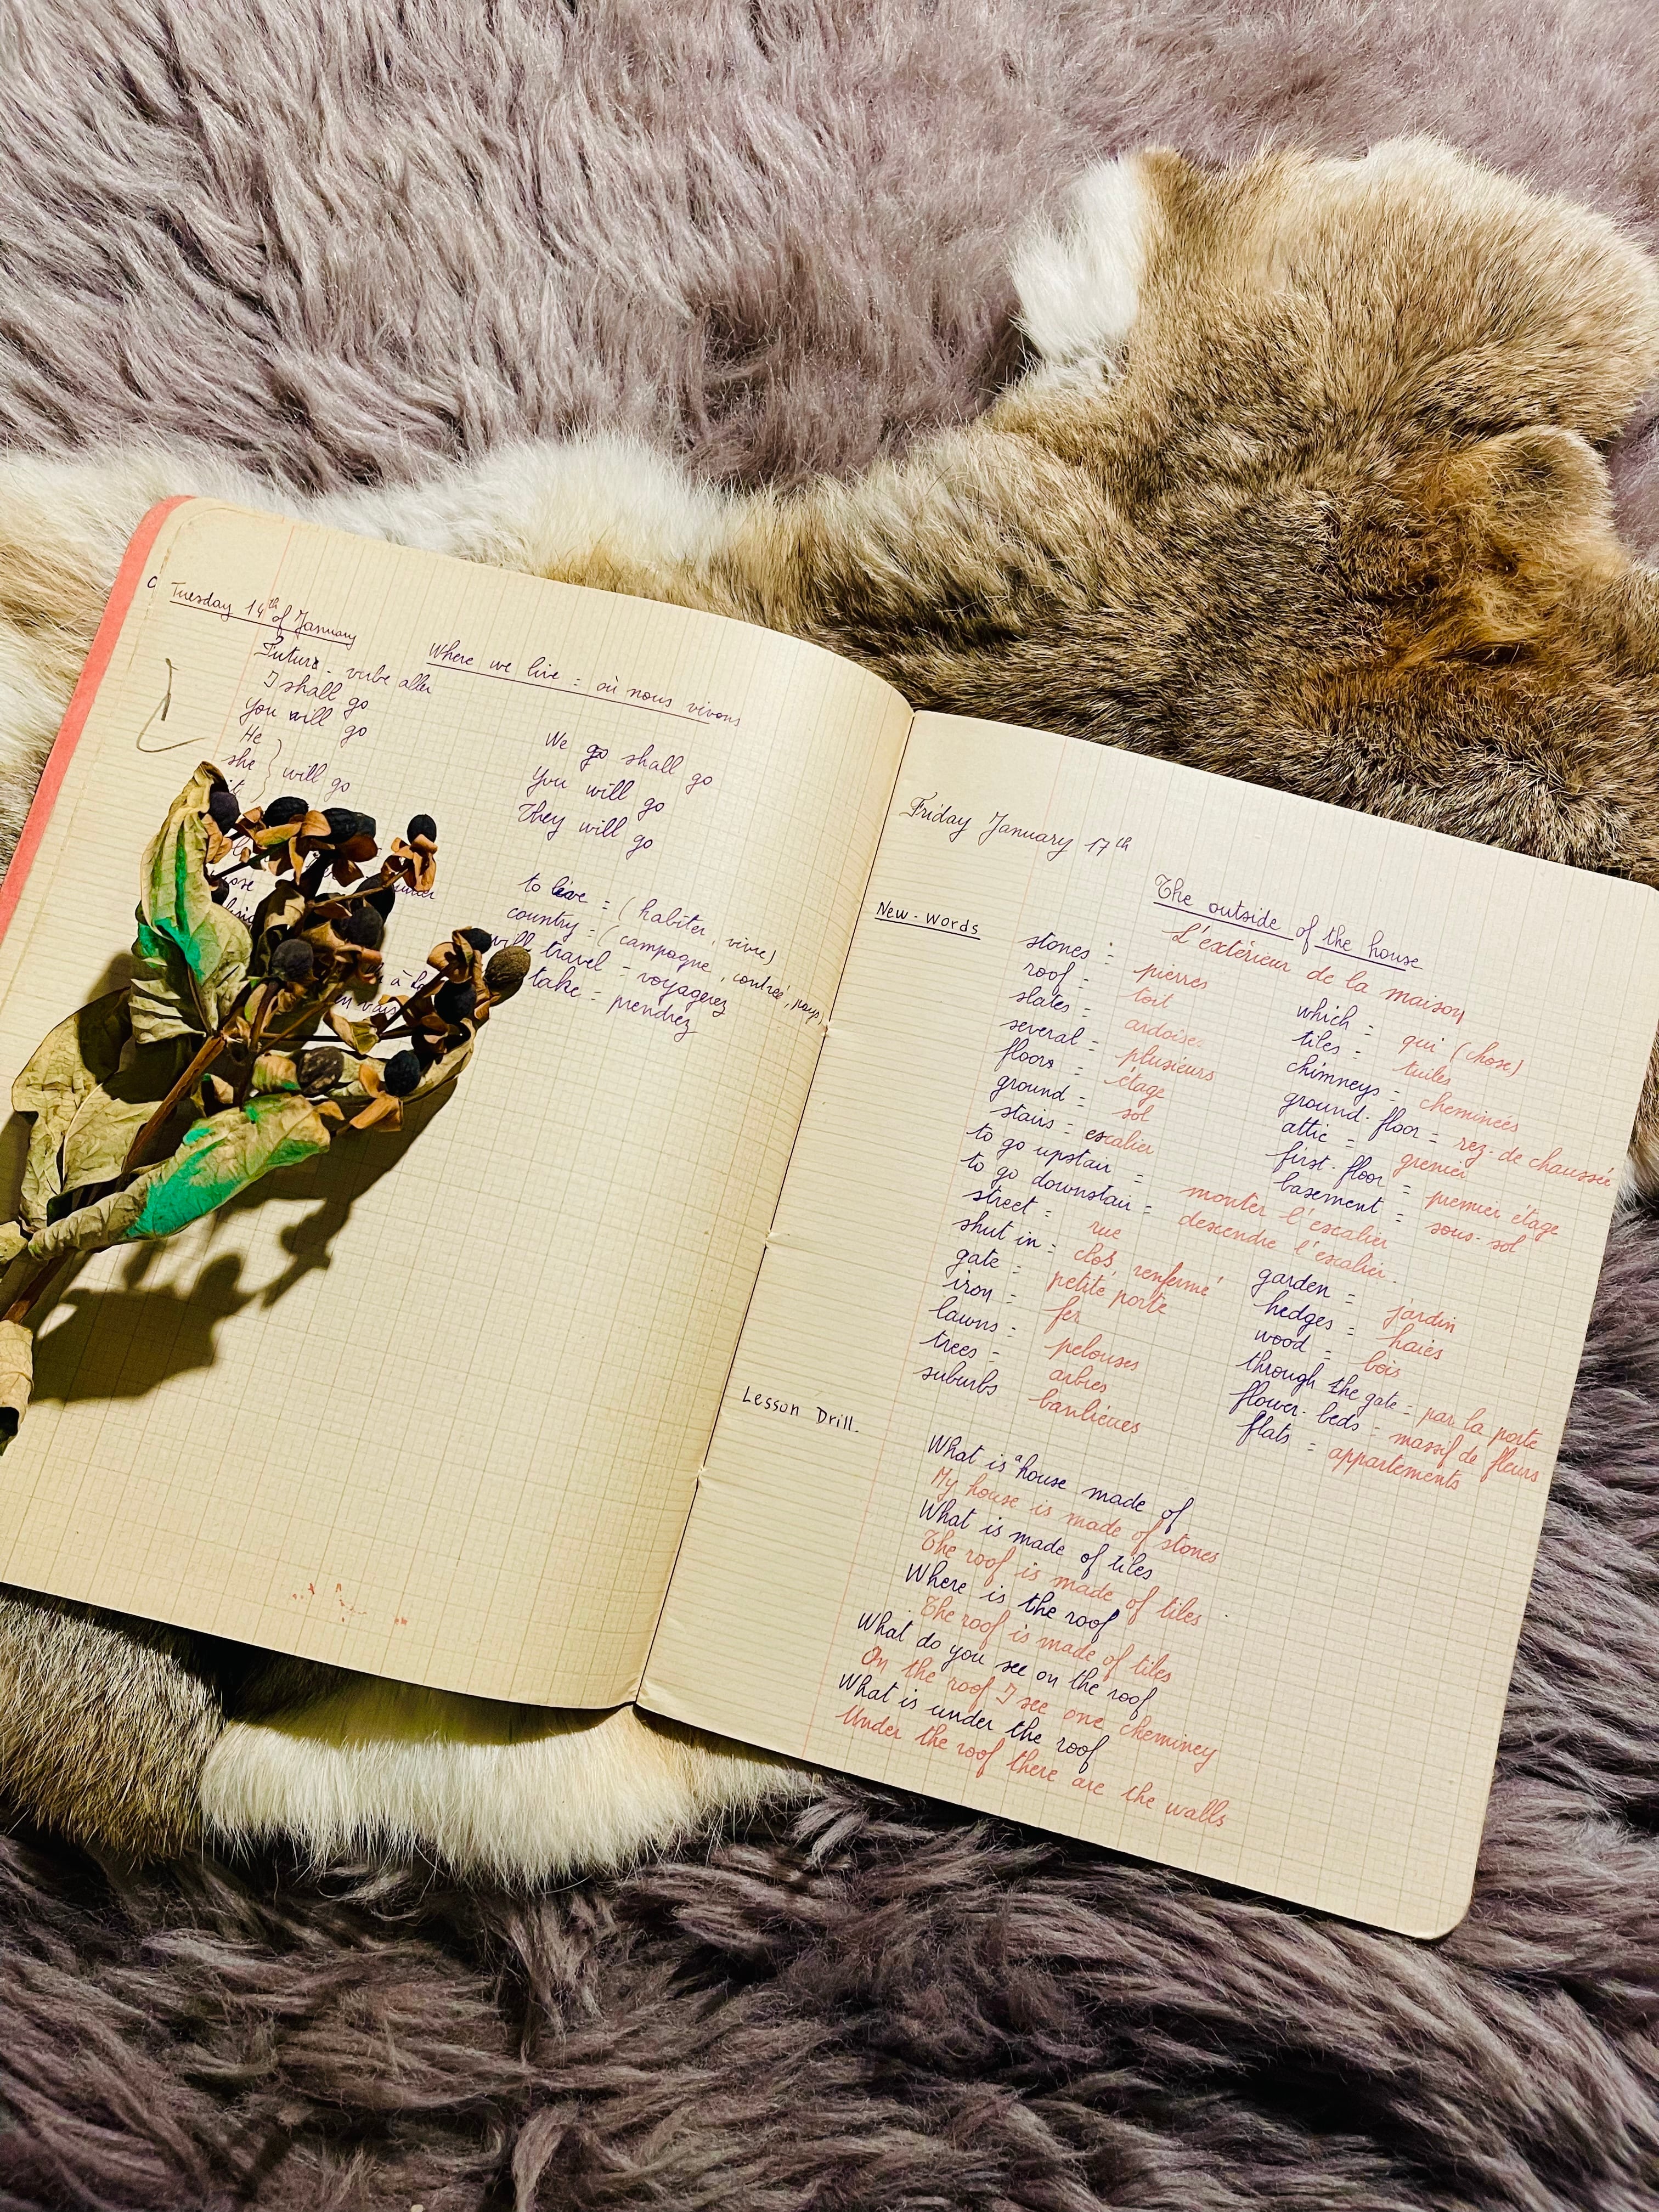 Tuesday 14th of January
Where we live = où nous vivons
Future - verbe aller
I shall go
You will go
He
she } will go
it
We go shall go
You will go
They will go
to live = (habiter, vivre)
country = (campagne, contrée, pays)
will travel = voyagerez
take = prendrez
Friday January 17th
The outside of the house
L'extérieur de la maison
New-words
stones = pierres
roof = toit
slates = ardoises
several = plusieurs
floors = étage
ground = sol
stairs = escalier
to go upstair = monter l'escalier
to go downstair = descendre l'escalier.
street = rue
shut in = clos, renfermé
gate = petite porte
iron = fer
lawns = pelouses
trees = arbres
suburbs banlieues
which = qui (chose)
tiles = tuiles
chimneys = cheminées
ground-floor = rez-de chaussée
attic = grenier
first-floor = premier étage
basement = sous-sol
garden = jardin
hedges = haies
wood = bois
through the gate = par la porte
flower-beds = massif de fleurs
flats = appartements
Lesson Drill.
What is a house made of
My house is made of stones
What is made of tiles
The roof is made of tiles
Where is the roof
The roof is made of tiles
What do you see on the roof
On the roof I see one cheminey
What is under the roof
Under the roof there are the walls